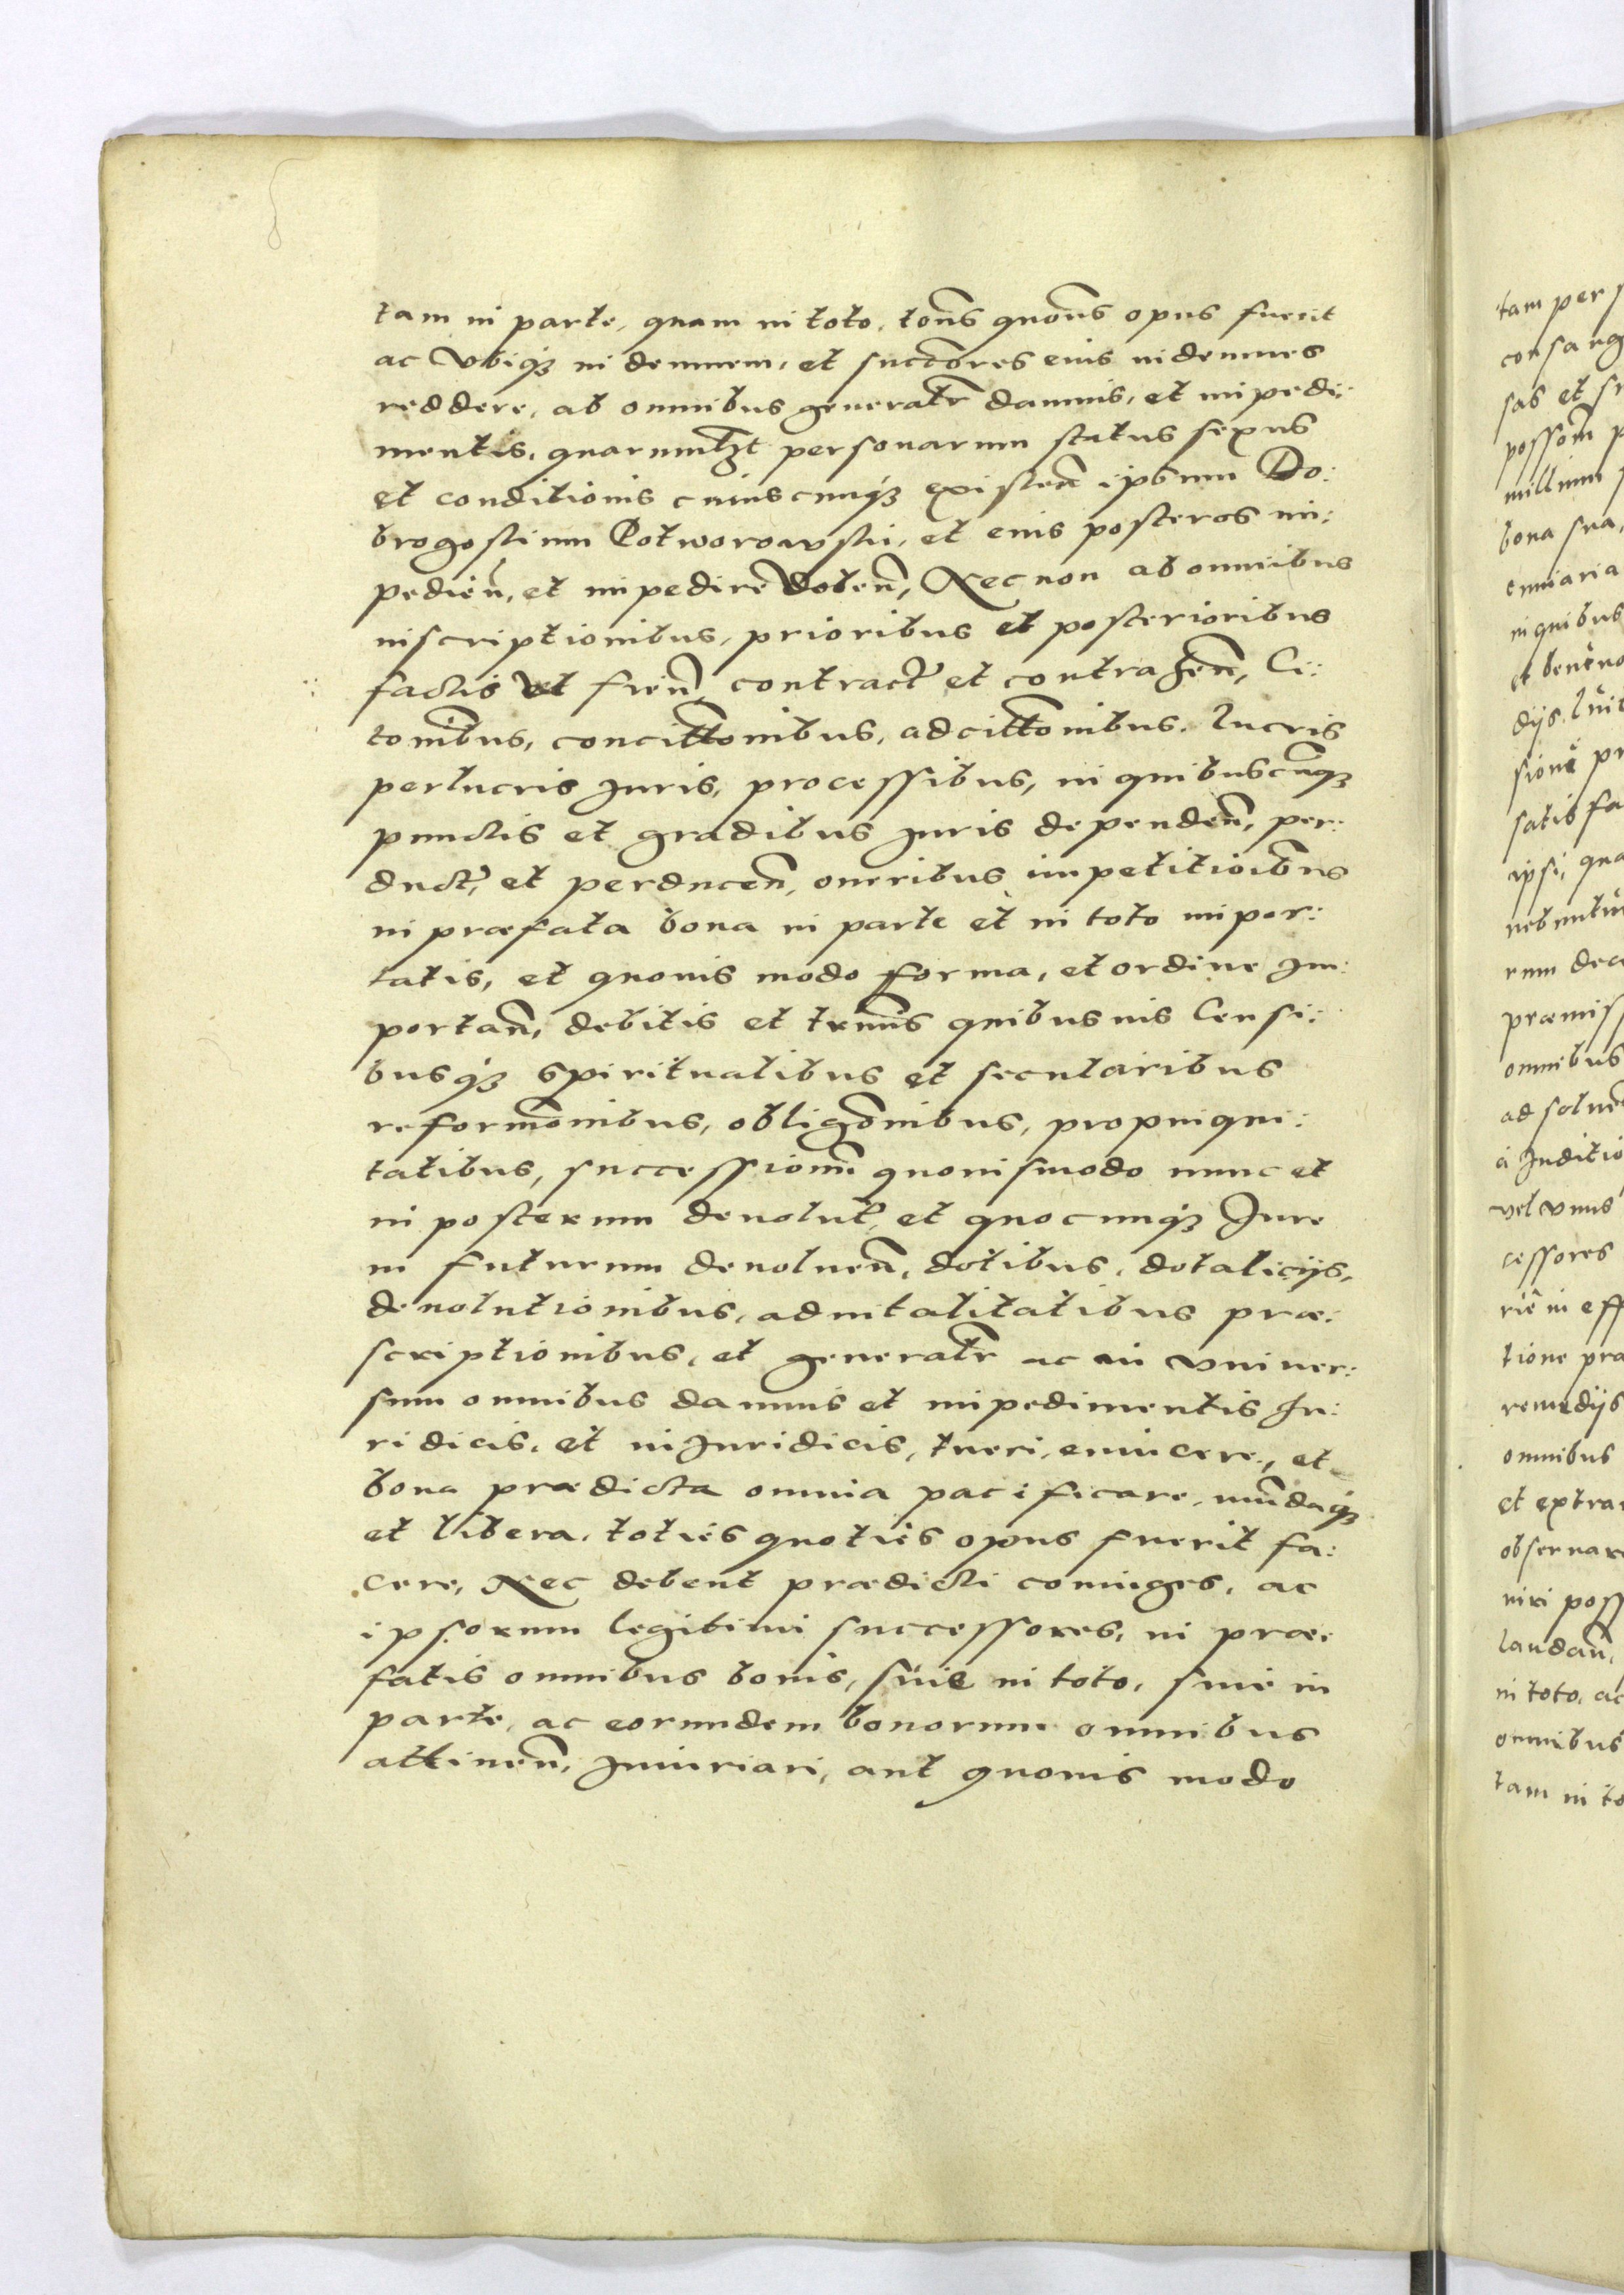 tam in parte, quam in toto, tōns quōns opus fuerit
ac vbiqȝ indemnem, et succtores eius indemnes
reddere, ab omnibus generatr damnis, et impedi:
mentis, quarumlȝt personarum status sexus
et conditionis cuiuscunqȝ existen̄ ipsum Do:
brogostium Potworowski, et eius posteros im:
pedien̄, et impedire volen̄, Nec non ab omnibus
inscriptionibus, prioribus et posterioribus
factis vel fien̄, contract̄ et contrahen̄, Ci:
tōnibus, concittōnibus, adcittōnibus, lucris
perlucris iuris, processibus, in quibuscūnqȝ
punctis et gradibus iuris dependen̄, per:
duct̄, et perducen̄, oneribus impetitioībus
in præfata bona in parte et in toto impor:
tatis, et quouis modo forma, et ordine im:
portan̄, debitis et trmīs quibusuis Censi:
busqȝ spiritualibus et secularibus
reformōnibus, obligōnibus, propinqui:
tatibus, successionū quouismodo nunc et
in posterum deuolut̄, et quocunqȝ Iure
in futurum deuoluen̄, dotibus, dotalicijs,
deuolutionibus, aduitalitatibus præ:
scriptionibus, et generatr ac in vniuer:
sum omnibus damnis et impedimentis Iu:
ridicis, et iniuridicis, tueri, euincere, et
bona prædicta omnia pacificare, mundaqȝ
et libera, toties quoties opus fuerit fa:
cere, Nec debent prædicti coniuges, ac
ipsorum legitimi successores, in præ:
fatis omnibus bonis, siue in toto, siue in
parte, ac eorundem bonorum omnibus
attinen̄, iniuriari, aut quouis modo
tam per
possōm
bona sua,
in quibus
satis fa
præmiss
omnibus
vel vnus
cessores
tione præ
remedijs
omnibus
et extra
laudan̄,
in toto, ac
omnibus
tam in to